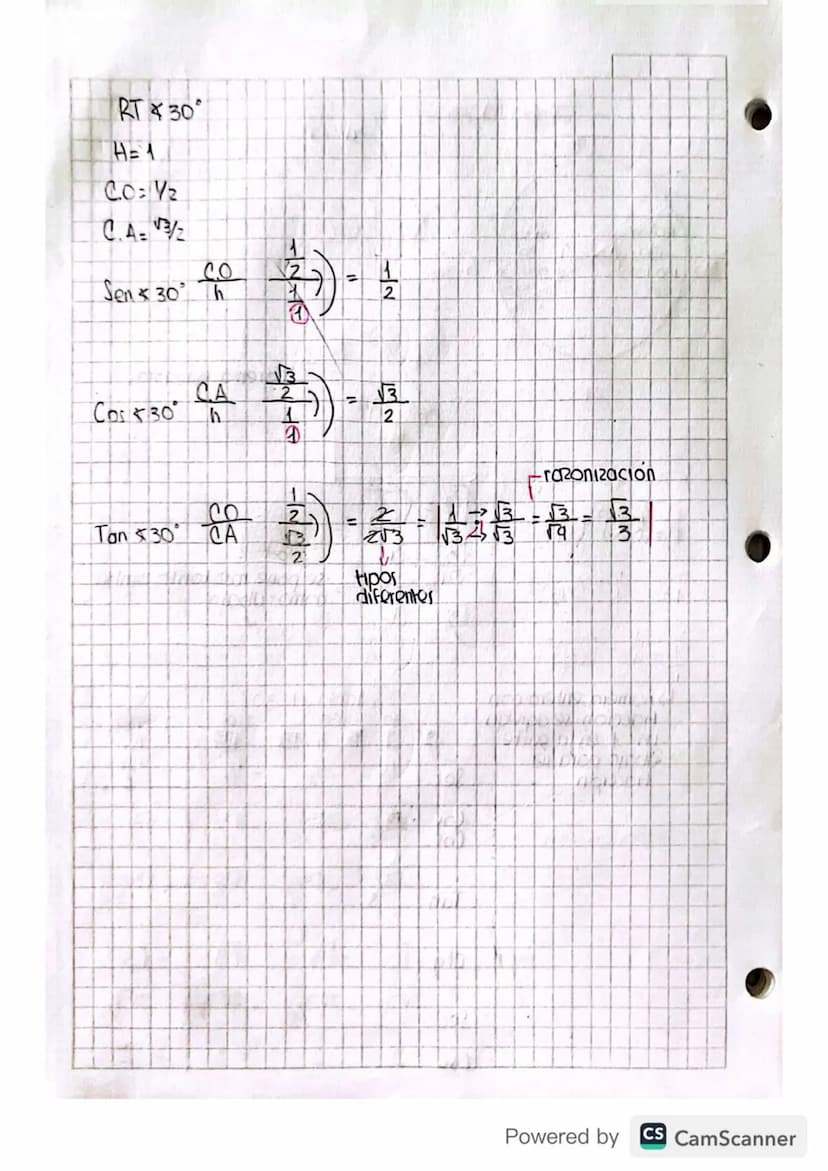 RT ∢ 30°
H= 1
C.O= 1/2
C.A= √3/2
Sen ∢ 30° CO/h (1/2)/(1/1) = 1/2
Cos ∢ 30° C.A/h (√3/2)/(1/1) = √3/2
razonización
Tan ∢ 30° CO/CA (1/2)/(√3/2) = 2/2√3 = | 1/√3 → √3/√3 = √3/√9 = √3/3 |
tipos
diferentes
Powered by CS CamScanner